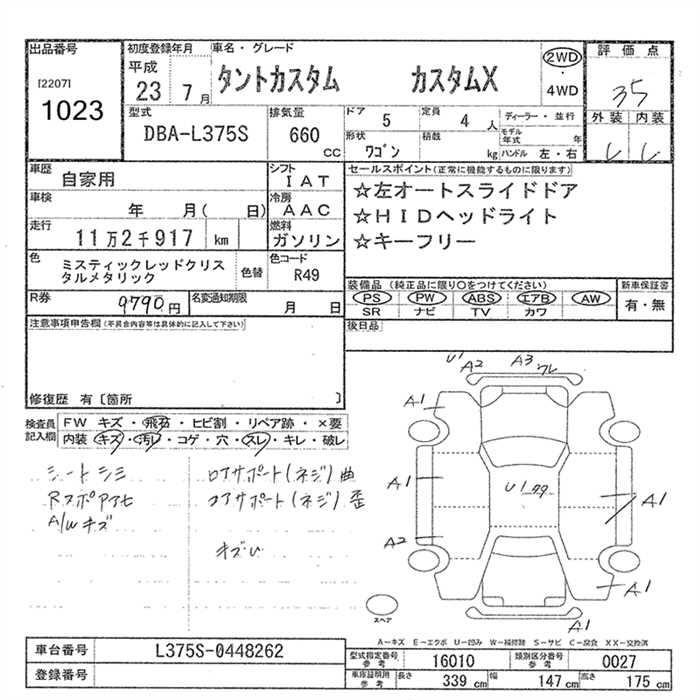 出品番号
[2207]
1023
初度登録年月
平成
23 7月
車名・グレード
タントカスタム カスタムX
2WD
・
4WD
評価点
35
外装 内装
型式
DBA-L375S
排気量
660 cc
ドア 5
定員 4 人
形状 ワゴン
積載 kg
ディーラー・並行
モデル年式 年
ハンドル 左・右
車歴
自家用
シフト
IAT
車検
年 月( 日)
冷房
AAC
走行
11万2千917 km
燃料
ガソリン
色
ミスティックレッドクリスタルメタリック
色替
色コード
R49
R券
9790円
名変通知期限
月 日
セールスポイント(正常に機能するものに限ります)
☆左オートスライドドア
☆HIDヘッドライト
☆キーフリー
装備品(純正品に限り〇をつけてください)
PS PW ABS エアB AW
SR ナビ TV カワ
新車保証書
有・無
後日品
注意事項申告欄(不具合内容等は具体的に記入して下さい)
修復歴 有〔箇所 〕
検査員記入欄
FW キズ・飛石・ヒビ割・リペア跡・×要
内装 キズ・汚レ・コゲ・穴・スレ・キレ・破レ
シートシミ
A/Wキズ
コアサポート(ネジ)曲
コアサポート(ネジ)歪
U1 A2 A3 ワレ
A1
A1
U1
A1
A2
A1
A1
スペア
A-キズ E-エクボ U-凹み W-補修跡 S-サビ C-腐食 XX-交換済
車台番号
L375S-0448262
登録番号
型式指定番号 参考
16010
類別区分番号 参考
0027
車庫証明用 参考
長さ 339 cm
幅 147 cm
高さ 175 cm